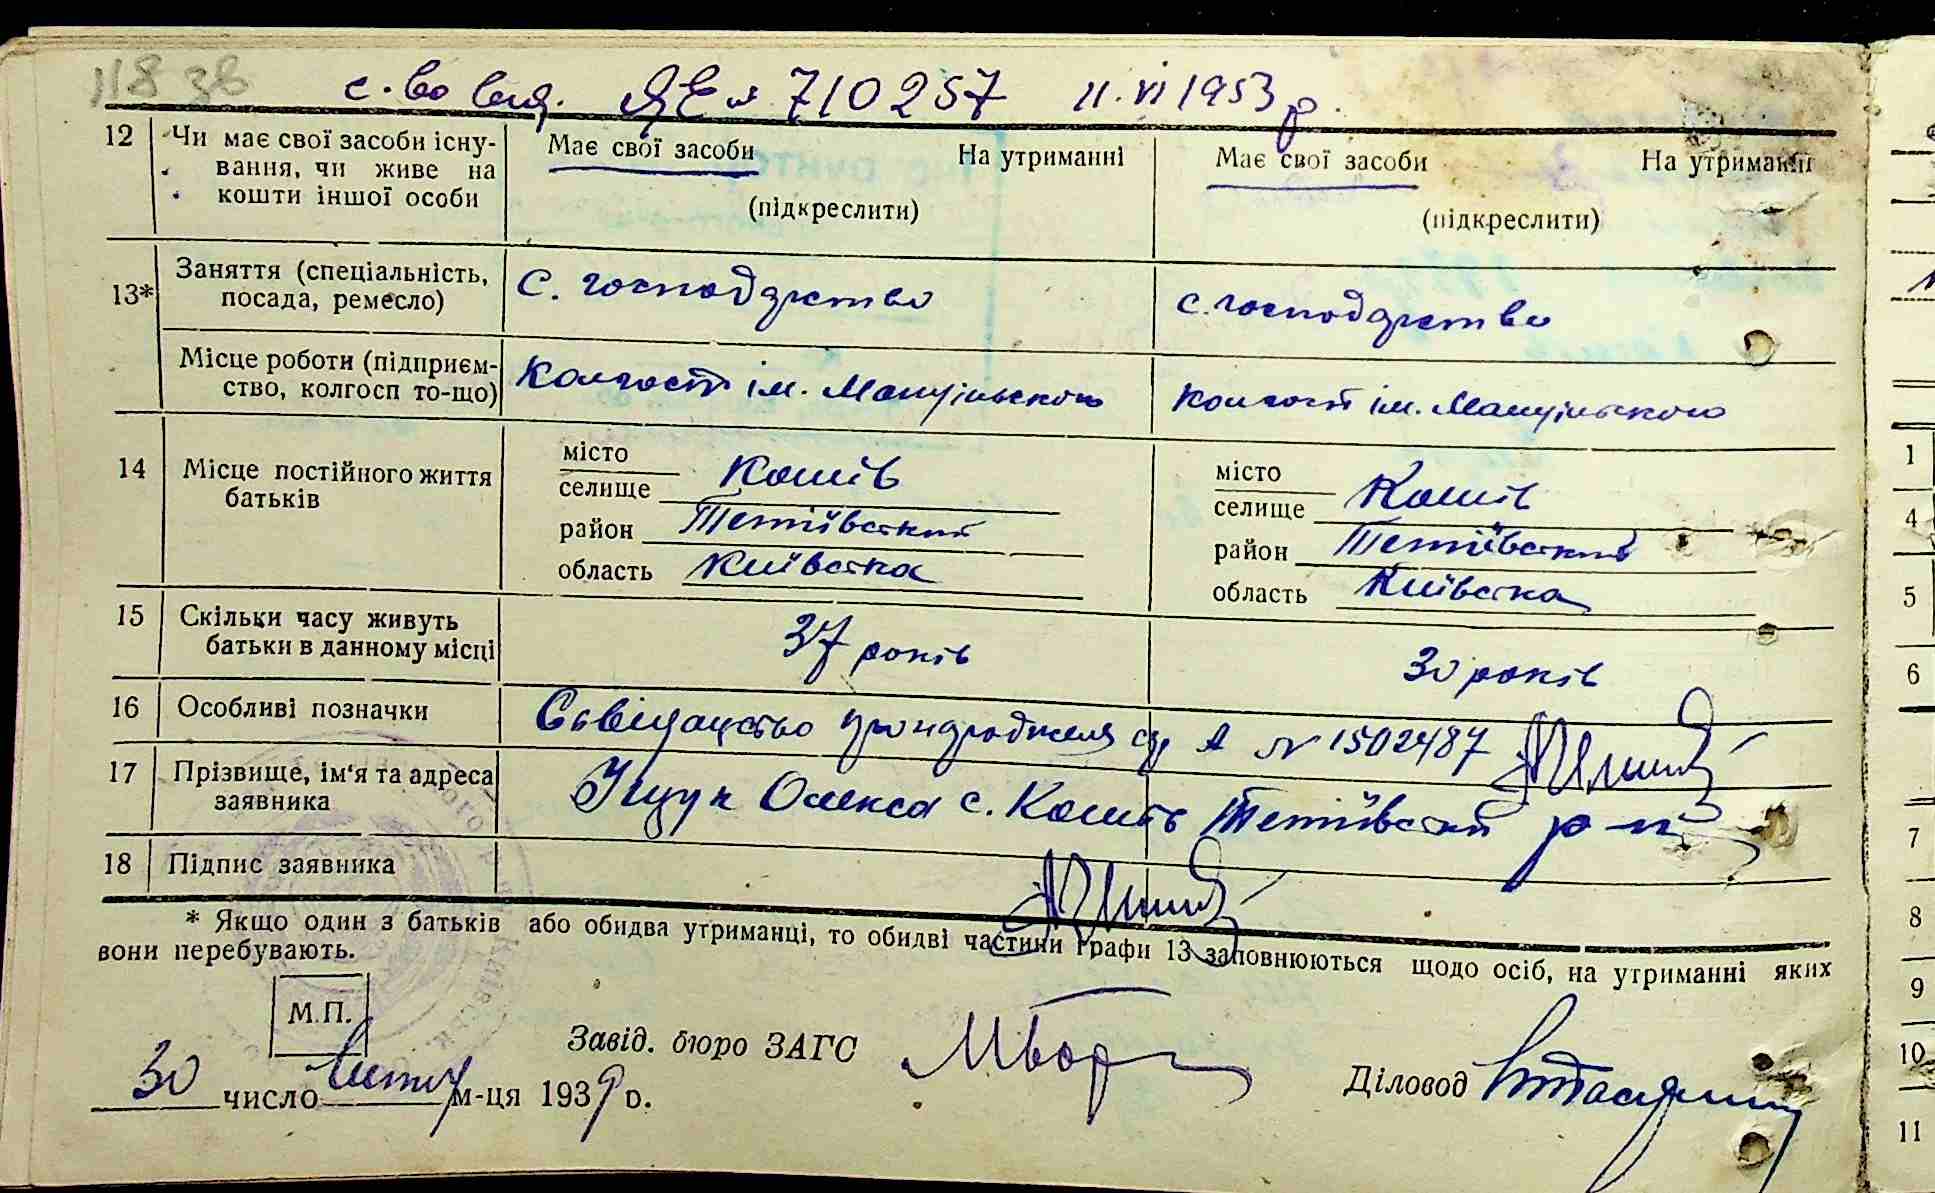 118 38
с-во вид. ЯЕ № 710257 11.VI 1953 р.
12 Чи має свої засоби існування, чи живе на кошти іншої особи
Має свої засоби На утриманні
(підкреслити)
Має свої засоби На утриманні
(підкреслити)
13* Заняття (спеціальність, посада, ремесло)
С. господарство
с. господарство
Місце роботи (підприємство, колгосп то-що)
Колгосп ім. Мануільського
Колгосп ім. Мануільського
14 Місце постійного життя батьків
місто
селище Кошів
район Тетіївський
область Київська
місто
селище Кошів
район Тетіївський
область Київська
15 Скільки часу живуть батьки в данному місці
37 років
30 років
16 Особливі позначки
А № 1502487
17 Прізвище, ім'я та адреса заявника
Олекса с. Кошів Тетіївськ р-н
18 Підпис заявника
* Якщо один з батьків або обидва утриманці, то обидві частини графи 13 заповнюються щодо осіб, на утриманні яких
вони перебувають.
М.П.
Завід. бюро ЗАГС
Діловод
30 число м-ця 1939 р.
1
4
5
6
7
8
9
10
11